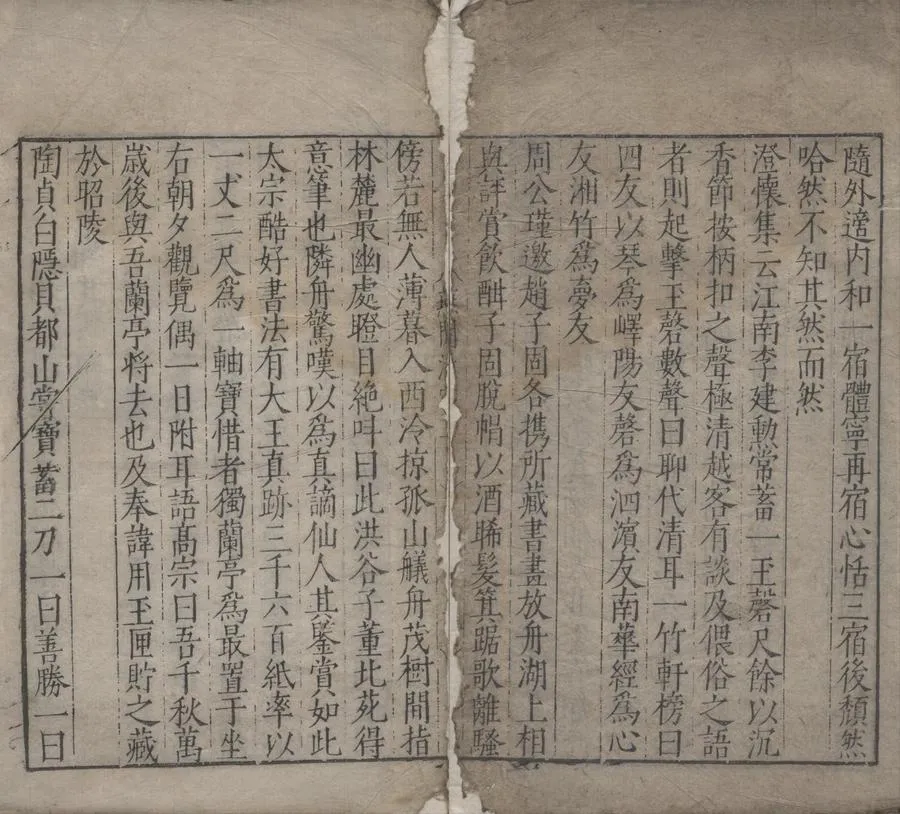 隨外適內和一宿體寧再宿心恬三宿後頹然
嗒然不知其然而然
澄懷集云江南李建勳常蓄一玉磬尺餘以沉
香節按柄扣之聲極清越客有談及偎俗之語
者則起擊玉磬數聲曰聊代清耳一竹軒榜曰
四友以琴為嶧陽友磬為泗濵友南華經為心
友湘竹為夢友
周公瑾邀趙子固各携所藏書畫放舟湖上相
與評賞飲酣子固脫帽以酒晞髮箕踞歌離騷
傍若無人薄暮入西泠掠孤山艤舟茂樹間指
林麓最幽處瞪目絶呌曰此洪谷子董北苑得
意筆也隣舟驚嘆以為真謫仙人其鑒賞如此
太宗酷好書法有大王真跡三千六百紙率以
一丈二尺為一軸寶惜者獨蘭亭為最置于坐
右朝夕觀覽偶一日附耳語髙宗曰吾千秋萬
歳後與吾蘭亭将去也及奉諱用玉匣貯之藏
於昭陵
陶貞白隱貝都山嘗寶蓄二刀一曰善勝一曰